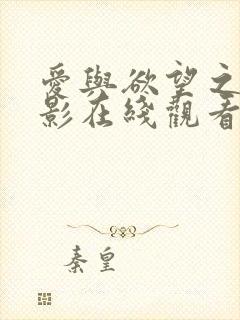 愛與欲望之
影在綫觀看
秦皇